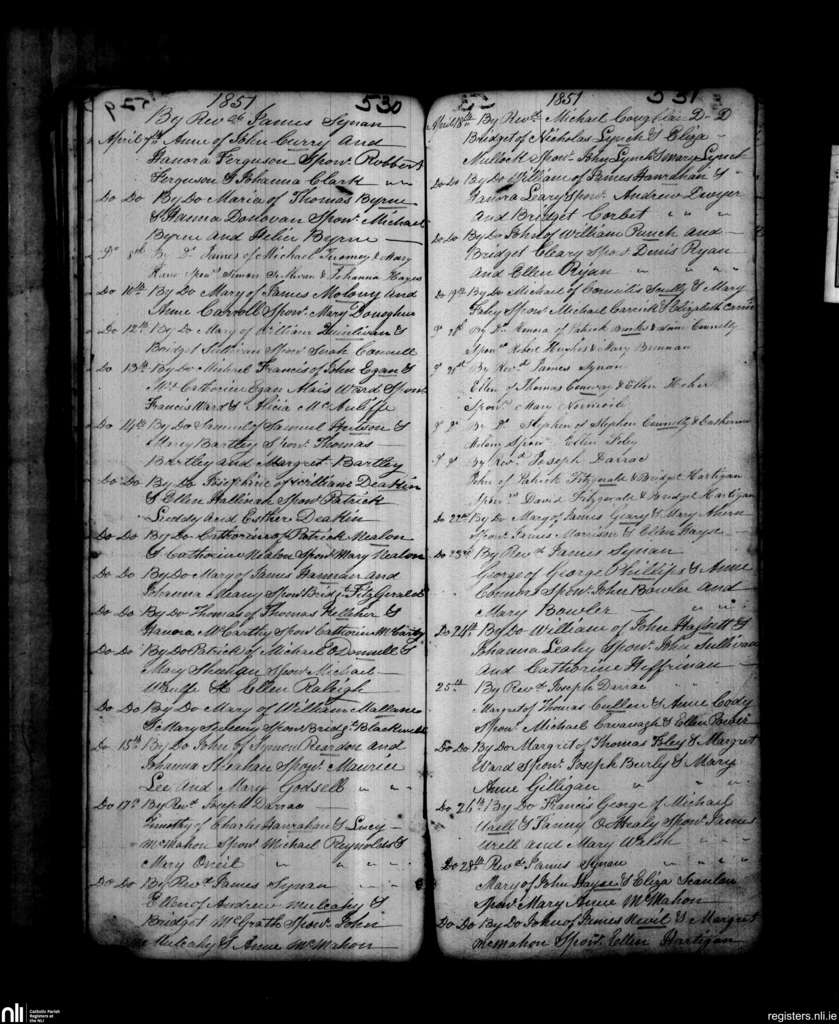 1851 530
By Revd James Synan
April 7th Anne of John Curry and
Hanora Ferguson Sponr Robbert
Ferguson & Johanna Clark
Do Do By Do Maria of Thomas Byrne
& Hanna Dodovan Sponr Michael
Byrne and Helen Byrne
Do 8th By Do James of Michael Twomey & Mary
Simon & Johanna Hayes
Do 10th By Do Mary of James Molony and
Anne Carroll Sponr Mary Donoghue
Do 12th By Do Mary of William Quinlivan &
Bridget Sullivan Sponr Sarah Connell
Do 13th By Do Michael Francis of John Egan &
Mrs Catherine Egan Alais Ward Sponr
Francis Ward & Alicia McAuliffe
Do 14th By Do Samuel of Samuel Hudson &
Mary Bartley Sponr Thomas
Bartley and Margret Bartley
Do Do By Do Josephine of William Deakin
& Ellen Hallinah Sponr Patrick
Leddy and Esther Deakin
Do Do By Do Catherine of Patrick Nealon
& Catherine Nealon Sponr Mary Nealon
Do Do By Do Mary of James Hannan and
Johanna Meany Sponr Bridgt FitzGerald
Do Do By Do Thomas of Thomas Kelleher &
Hanora McCarthy Sponr Catherine McCarthy
Do Do By Do Patrick of Michael ODonnell &
Mary Sheehan Sponr Michael
Wolfe & Ellen Raleigh
Do Do By Do Mary of William Mallane
& Mary Sweeny Sponr Bridgt Blackwell
Do 15th By Do John of Symon Reardon and
Johanna Meahan Sponr Maurice
Lee and Mary Godsell
Do 17th By Revd Joseph Darrac
Timothy of Charles Hanrahan & Lucy
McMahon Sponr Michael Reynolds &
Mary Oneil
Do Do By Revd James Synan
Ellen of Andrew Mulcahy &
Bridget McGrath Sponr John
Mulcahy & Anne McMahon
1851 531
April 18th By Revd Michael Coughlan D-D
Bridget of Nicholas Lynch & Eliza
Mullock Sponr John Lynch & Mary Lynch
Do Do By Do William of James Hanrahan &
Hanora Leary Sponr Andrew Dwyer
and Bridget Corbet
Do Do By Do John of William Punch and
Bridget Cleary Sponr Denis Ryan
and Ellen Ryan
Do 19th By Do Michael of Cornelius Scully & Mary
Foley Sponr Michael Carrick & Elizabeth
By Do of Patrick & Anne Connelly
Sponrs Robert Hughes & Mary Brennan
21st By Revd James Synan
Ellen of Thomas Conway & Ellen
Sponr Mary
Do Do By Do Stephen of Stephen Connelly & Catherine
Sponr Ellen Foley
Do Do By Revd Joseph Darrac
John of Patrick Fitzgerald & Bridget Hartigan
Sponrs David Fitzgerald & Bridget Hartigan
Do 22nd By Do Margt of James Geary & Mary Ahern
Sponr James Morrison & Ellen Hayes
Do 23rd By Revd James Synan
George of George Phillips & Anne
Coombs Sponr John Bowler and
Mary Bowler
Do 24th By Do William of John Haslett &
Johanna Leahy Sponr John Sullivan
and Catherine Heffrinan
25th By Revd Joseph Darrac
Margret of Thomas Cullen & Anne Cody
Sponr Michael Cavanagh & Ellen Power
Do Do By Do Margret of Thomas Foley & Margret
Ward Sponr Joseph Burly & Mary
Anne Gilligan
Do 26th By Do Francis George of Michael
Urell & Fanny OHealy Sponr James
Urell and Mary Walsh
Do 28th Revd James Synan
Mary of John Hayse & Eliza Scanlan
Sponr Mary Anne McMahon
Do Do By Do John of James Nevil & Margret
McMahon Sponr Ellen Hartigan
nli
Catholic Parish
Registers at
the NLI
registers.nli.ie